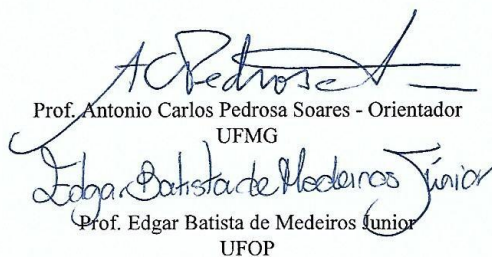 ACPedrosa
Prof. Antonio Carlos Pedrosa Soares - Orientador
UFMG
Edgar Batista de Medeiros Júnior
Prof. Edgar Batista de Medeiros Junior
UFOP